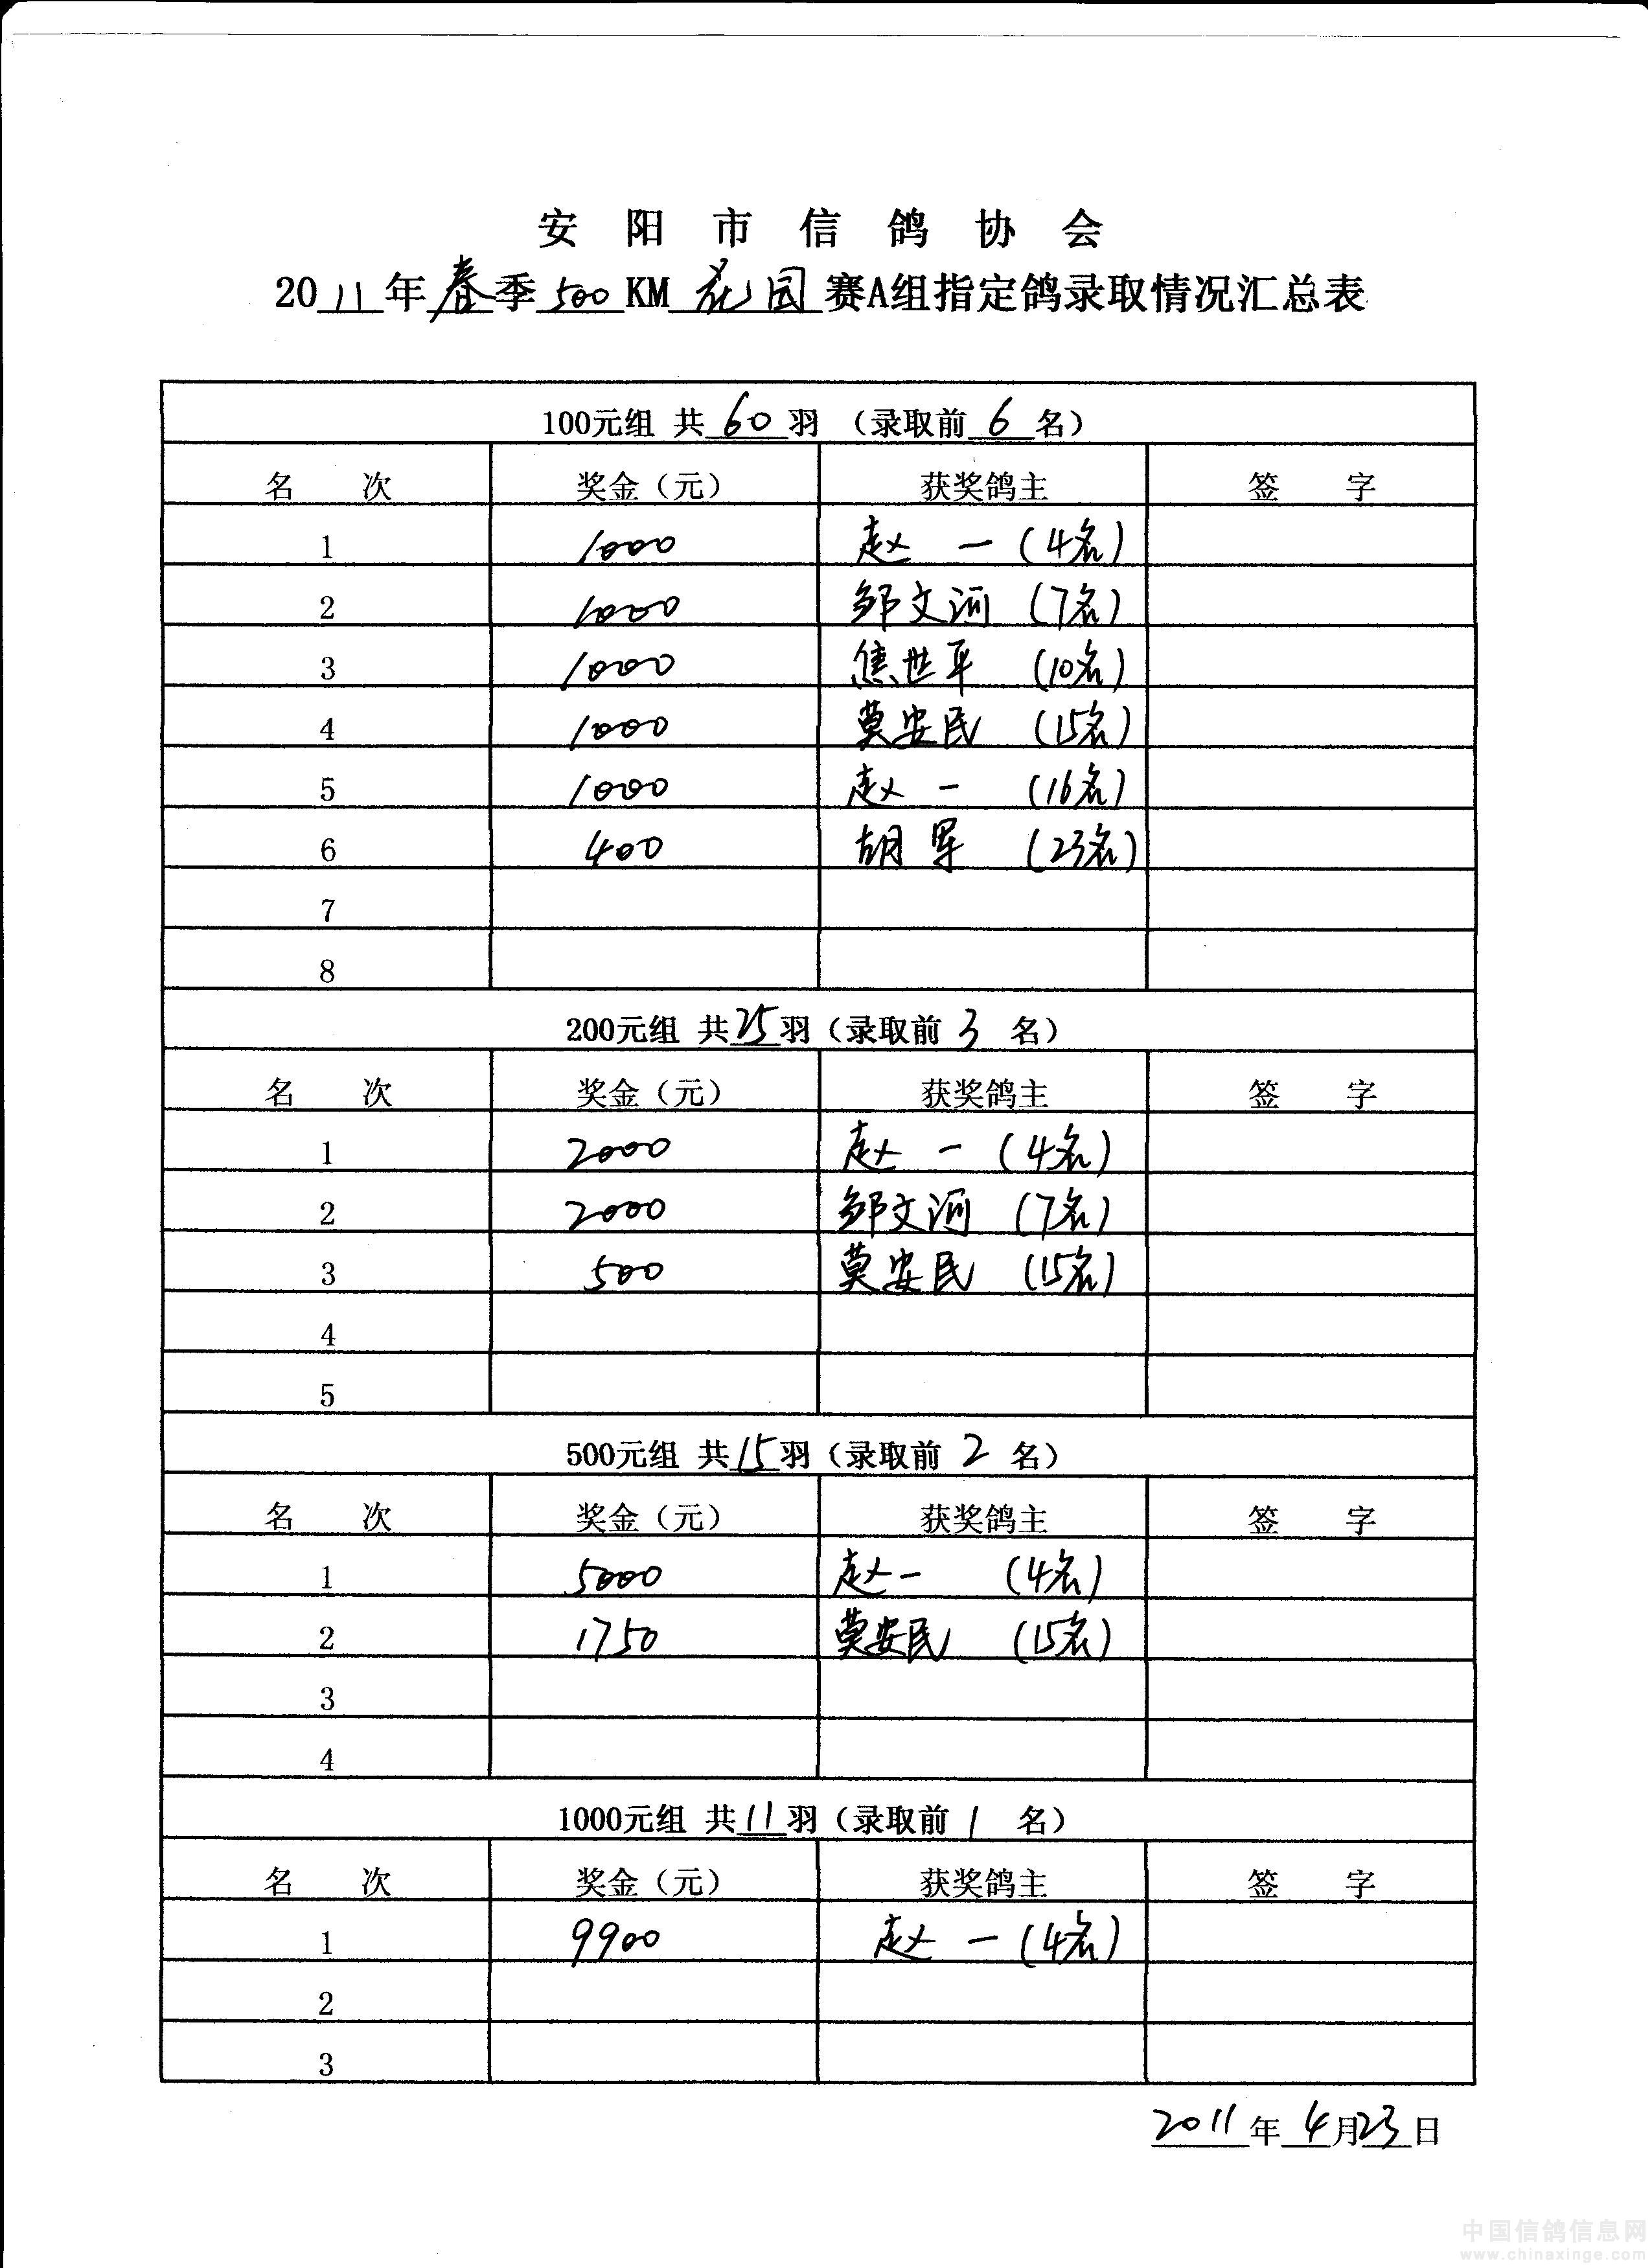 安阳市信鸽协会
2011年春季500KM花园赛A组指定鸽录取情况汇总表
100元组 共60羽 (录取前6名)
名 次 奖金(元) 获奖鸽主 签 字
1 1000 赵一(4名)
2 1000 邹文河(7名)
3 1000 焦世平(10名)
4 1000 莫安民(15名)
5 1000 赵一(16名)
6 400 胡军(23名)
7
8
200元组 共25羽(录取前3名)
名 次 奖金(元) 获奖鸽主 签 字
1 2000 赵一(4名)
2 2000 邹文河(7名)
3 500 莫安民(15名)
4
5
500元组 共15羽(录取前2名)
名 次 奖金(元) 获奖鸽主 签 字
1 5000 赵一(4名)
2 1750 莫安民(15名)
3
4
1000元组 共11羽(录取前1名)
名 次 奖金(元) 获奖鸽主 签 字
1 9900 赵一(4名)
2
3
2011年4月23日
中国信鸽信息网
www.chinaxinge.com